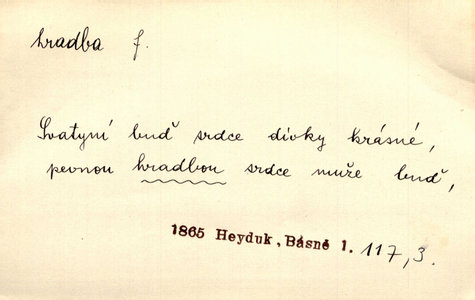 hradba f.
Svatyní buď srdce dívky krásné,
pevnou hradbou srdce muže buď,
1865 Heyduk, Básně 1. 117,3.